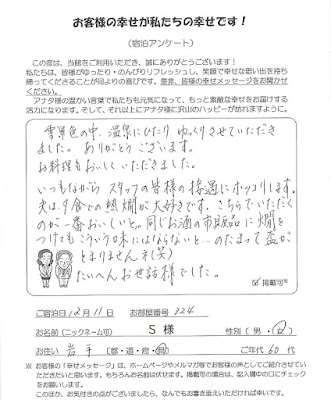 お客様の幸せが私たちの幸せです!
（宿泊アンケート）
この度は、当館をご利用いただき、誠にありがとうございます!
私たちは、皆様がゆったり・のんびりリフレッシュし、笑顔で幸せな思い出を持ち
帰ってくださることが何よりの喜びです。是非、皆様の幸せメッセージをお聞かせ
ください。
アナタ様の温かい言葉で私たちも元気になって、もっと素敵な幸せをお届けする
活力になります。そして、それ以上にアナタ様に沢山のハッピーが訪れますように。
雪景色の中、温泉にひたり ゆっくりさせていただき
ました。ありがとうございます。
お料理もおいしくいただきました。
いつもながら スタッフの皆様の接遇にホッコリします。
夫は夕食での熱燗が大好きです。こちらでいただく
のが一番おいしいと。同じお酒の市販品に燗を
つけてもこういう味にはならないと…のたまって盃が
とまりませんネ(笑)
たいへんお世話様でした。
☑掲載可
ご宿泊日 12月11日 お部屋番号 324
お名前(ニックネーム可) S 様 性別(男・女)
お住い 岩手 (都・道・府・県) ご年代 60 代
※お客様の「幸せメッセージ」は、ホームページやメルマガ等でお客様の声としてご紹介させて
いただきたいと思います。もちろんお名前は伏せます。掲載可の場合は、記入欄中の□にチェック
をお願いします。
このほか、お気付きの点がございましたら、なんでもお書き添えいただければ幸いです。